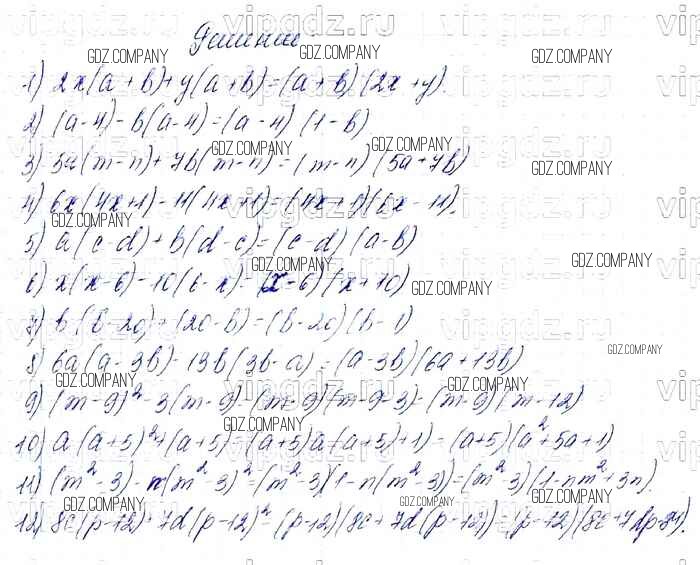 Решение
1) 2x(a + b) + y(a + b) = (a + b)(2x + y)
2) (a-4) - b(a-4) = (a-4) (1-b)
3) 5a(m-n) + 7b(m-n) = (m-n) (5a+7b)
4) 6x(4x+1) - 11(4x+1) = (4x+1)(6x-11).
5) a(c-d) + b(d-c) = (c-d) (a-b)
6) x(x-6) - 10(6-x) = (x-6) (x+10)
7) b(b-20) + (20-b) = (b-20)(b-1)
8) 6a(a-3b) - 13b(3b-a) = (a-3b)(6a+13b)
9) (m-9)² - 3(m-9) = (m-9)(m-9-3) = (m-9)(m-12)
10) a(a+5)² + (a+5) = (a+5)(a(a+5)+1) = (a+5)(a²+5a+1)
11) (m²-3) - n(m²-3)² = (m²-3)(1-n(m²-3)) = (m²-3)(1-nm²+3n).
12) 8c(p-12) + 7d(p-12)² = (p-12)(8c+7d(p-12)) = (p-12)(8c+7dp-84).